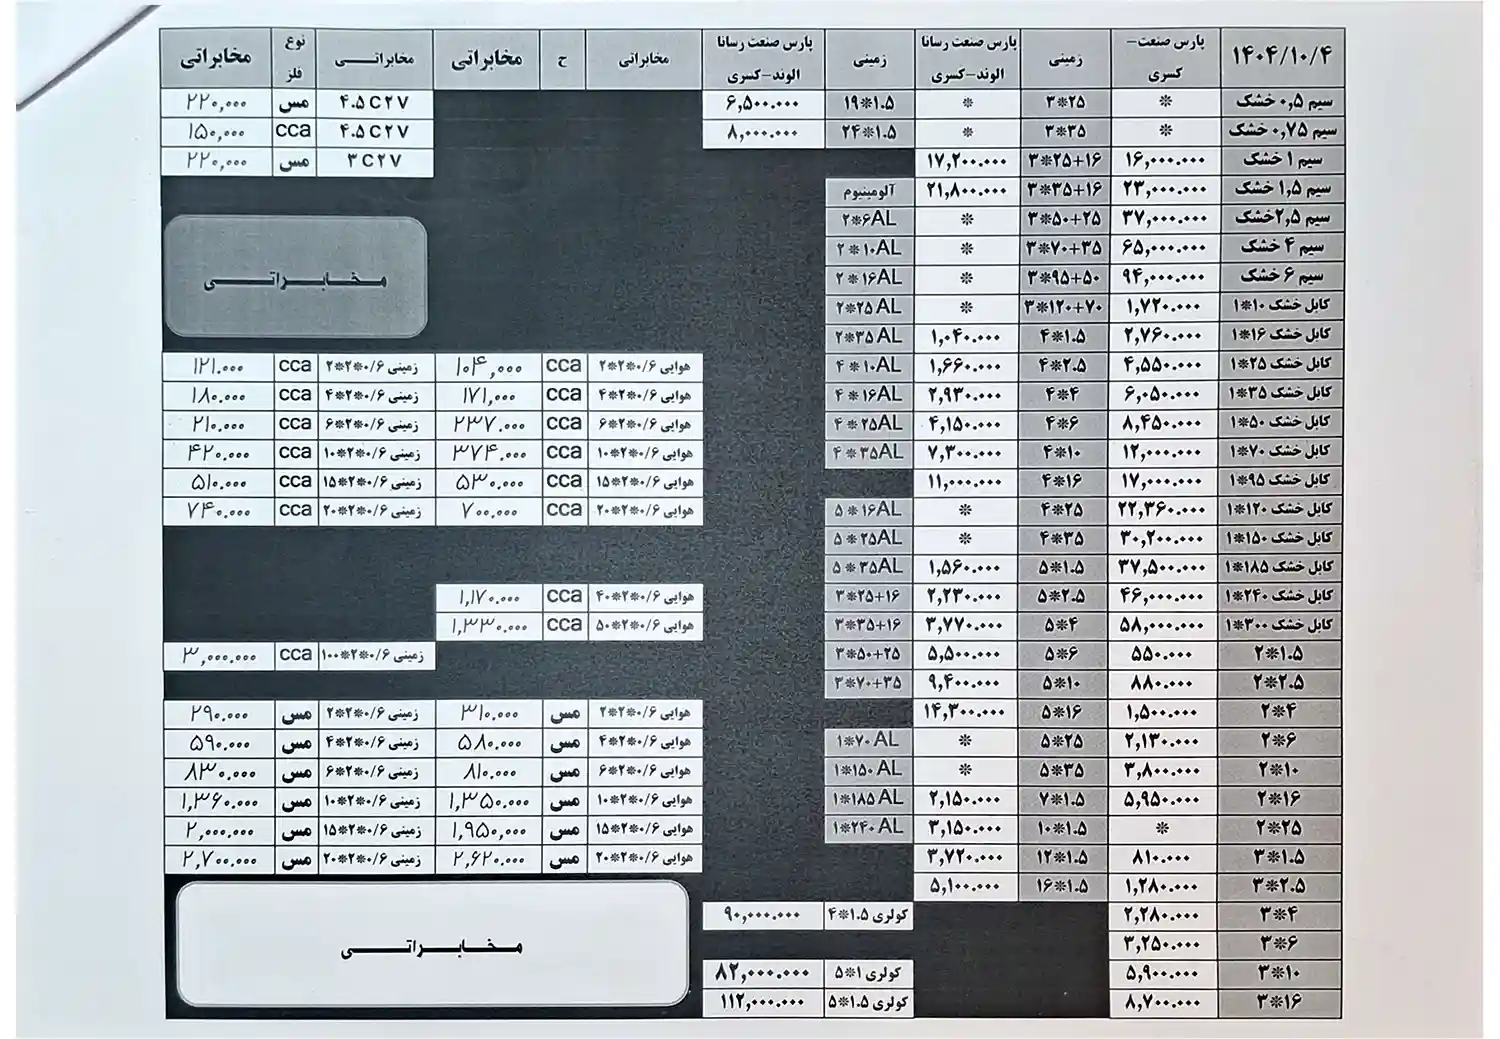 ۱۴۰۴/۱۰/۴ پارس صنعت–کسری زمینی پارس صنعت رسانا الوند–کسری زمینی پارس صنعت رسانا الوند–کسری مخابراتی ح مخابراتی مخابراتـــی نوع فلز مخابراتی
سیم ۰,۵ خشک * ۳*۲۵ * ۱۹*۱.۵ ۶,۵۰۰.۰۰۰ ۴.۵ C۲۷ مس ۲۲۰,۰۰۰
سیم ۰,۷۵ خشک * ۳*۳۵ * ۲۴*۱.۵ ۸,۰۰۰.۰۰۰ ۴.۵ C۲۷ cca ۱۵۰,۰۰۰
سیم ۱ خشک ۱۶,۰۰۰.۰۰۰ ۳*۲۵+۱۶ ۱۷,۲۰۰.۰۰۰ ۳ C۲۷ مس ۲۲۰,۰۰۰
سیم ۱,۵ خشک ۲۳,۰۰۰.۰۰۰ ۳*۳۵+۱۶ ۲۱,۸۰۰.۰۰۰ آلومینیوم
سیم ۲,۵خشک ۳۷,۰۰۰.۰۰۰ ۳*۵۰+۲۵ * ۲*۶AL
سیم ۴ خشک ۶۵,۰۰۰.۰۰۰ ۳*۷۰+۳۵ * ۲*۱۰AL
سیم ۶ خشک ۹۴,۰۰۰.۰۰۰ ۳*۹۵+۵۰ * ۲*۱۶AL مـخــابــراتـــی
کابل خشک ۱۰*۱ ۱,۷۲۰.۰۰۰ ۳*۱۲۰+۷۰ * ۲*۲۵AL
کابل خشک ۱۶*۱ ۲,۷۶۰.۰۰۰ ۴*۱.۵ ۱,۰۴۰.۰۰۰ ۲*۳۵AL
کابل خشک ۲۵*۱ ۴,۵۵۰.۰۰۰ ۴*۲.۵ ۱,۶۶۰.۰۰۰ ۴*۱۰AL هوایی ۰/۶*۲*۲ cca ۱۰۴,۰۰۰ زمینی ۰/۶*۲*۲ cca ۱۲۱.۰۰۰
کابل خشک ۳۵*۱ ۶,۰۵۰.۰۰۰ ۴*۴ ۲,۹۳۰.۰۰۰ ۴*۱۶AL هوایی ۰/۶*۲*۴ cca ۱۷۱,۰۰۰ زمینی ۰/۶*۲*۴ cca ۱۸۰.۰۰۰
کابل خشک ۵۰*۱ ۸,۴۵۰.۰۰۰ ۴*۶ ۴,۱۵۰.۰۰۰ ۴*۲۵AL هوایی ۰/۶*۲*۶ cca ۲۳۷.۰۰۰ زمینی ۰/۶*۲*۶ cca ۲۱۰.۰۰۰
کابل خشک ۷۰*۱ ۱۲,۰۰۰.۰۰۰ ۴*۱۰ ۷,۳۰۰.۰۰۰ ۴*۳۵AL هوایی ۰/۶*۲*۱۰ cca ۳۷۴.۰۰۰ زمینی ۰/۶*۲*۱۰ cca ۴۲۰.۰۰۰
کابل خشک ۹۵*۱ ۱۷,۰۰۰.۰۰۰ ۴*۱۶ ۱۱,۰۰۰.۰۰۰ هوایی ۰/۶*۲*۱۵ cca ۵۳۰.۰۰۰ زمینی ۰/۶*۲*۱۵ cca ۵۱۰.۰۰۰
کابل خشک ۱۲۰*۱ ۲۲,۳۶۰.۰۰۰ ۴*۲۵ * ۵*۱۶AL هوایی ۰/۶*۲*۲۰ cca ۷۰۰.۰۰۰ زمینی ۰/۶*۲*۲۰ cca ۷۴۰.۰۰۰
کابل خشک ۱۵۰*۱ ۳۰,۲۰۰.۰۰۰ ۴*۳۵ * ۵*۲۵AL
کابل خشک ۱۸۵*۱ ۳۷,۵۰۰.۰۰۰ ۵*۱.۵ ۱,۵۶۰.۰۰۰ ۵*۳۵AL
کابل خشک ۲۴۰*۱ ۴۶,۰۰۰.۰۰۰ ۵*۲.۵ ۲,۲۳۰.۰۰۰ ۳*۲۵+۱۶ هوایی ۰/۶*۲*۴۰ cca ۱,۱۷۰.۰۰۰
کابل خشک ۳۰۰*۱ ۵۸,۰۰۰.۰۰۰ ۵*۴ ۳,۷۷۰.۰۰۰ ۳*۳۵+۱۶ هوایی ۰/۶*۲*۵۰ cca ۱,۳۳۰.۰۰۰
۲*۱.۵ ۵۵۰.۰۰۰ ۵*۶ ۵,۵۰۰.۰۰۰ ۳*۵۰+۲۵ زمینی ۰/۶*۲*۱۰۰ cca ۳,۰۰۰.۰۰۰
۲*۲.۵ ۸۸۰.۰۰۰ ۵*۱۰ ۹,۴۰۰.۰۰۰ ۳*۷۰+۳۵
۲*۴ ۱,۵۰۰.۰۰۰ ۵*۱۶ ۱۴,۳۰۰.۰۰۰ هوایی ۰/۶*۲*۲ مس ۳۱۰.۰۰۰ زمینی ۰/۶*۲*۲ مس ۲۹۰.۰۰۰
۲*۶ ۲,۱۳۰.۰۰۰ ۵*۲۵ * ۱*۷۰AL هوایی ۰/۶*۲*۴ مس ۵۸۰.۰۰۰ زمینی ۰/۶*۲*۴ مس ۵۹۰.۰۰۰
۲*۱۰ ۳,۸۰۰.۰۰۰ ۵*۳۵ * ۱*۱۵۰AL هوایی ۰/۶*۲*۶ مس ۸۱۰.۰۰۰ زمینی ۰/۶*۲*۶ مس ۸۳۰.۰۰۰
۲*۱۶ ۵,۹۵۰.۰۰۰ ۷*۱.۵ ۲,۱۵۰.۰۰۰ ۱*۱۸۵AL هوایی ۰/۶*۲*۱۰ مس ۱,۳۵۰.۰۰۰ زمینی ۰/۶*۲*۱۰ مس ۱,۳۶۰.۰۰۰
۲*۲۵ * ۱۰*۱.۵ ۳,۱۵۰.۰۰۰ ۱*۲۴۰AL هوایی ۰/۶*۲*۱۵ مس ۱,۹۵۰,۰۰۰ زمینی ۰/۶*۲*۱۵ مس ۲,۰۰۰.۰۰۰
۳*۱.۵ ۸۱۰.۰۰۰ ۱۲*۱.۵ ۳,۷۲۰.۰۰۰ هوایی ۰/۶*۲*۲۰ مس ۲,۶۲۰.۰۰۰ زمینی ۰/۶*۲*۲۰ مس ۲,۷۰۰.۰۰۰
۳*۲.۵ ۱,۲۸۰.۰۰۰ ۱۶*۱.۵ ۵,۱۰۰.۰۰۰
۳*۴ ۲,۲۸۰.۰۰۰ کولری ۱.۵*۴ ۹۰,۰۰۰.۰۰۰
۳*۶ ۳,۲۵۰.۰۰۰ مـخــابــراتـــی
۳*۱۰ ۵,۹۰۰.۰۰۰ کولری ۱*۵ ۸۲,۰۰۰.۰۰۰
۳*۱۶ ۸,۷۰۰.۰۰۰ کولری ۱.۵*۵ ۱۱۲,۰۰۰.۰۰۰